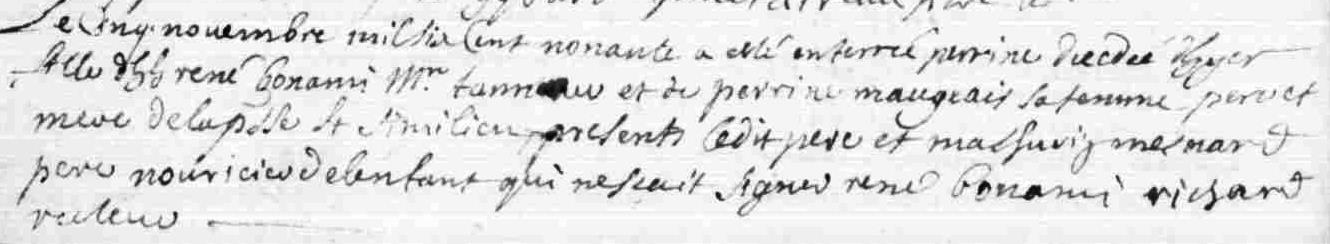 Le Cinq novembre mil six Cent nonante a esté enterreé perrine decedeé d'hyer
fille d'h h rené bonami Mre tanneur et de perrine maugeais sa femme pere et
mere de la psse St Similien presents ledit pere et mathurin mesnard
pere nouricier de lenfant qui ne scait signer rené bonami richard
recteur